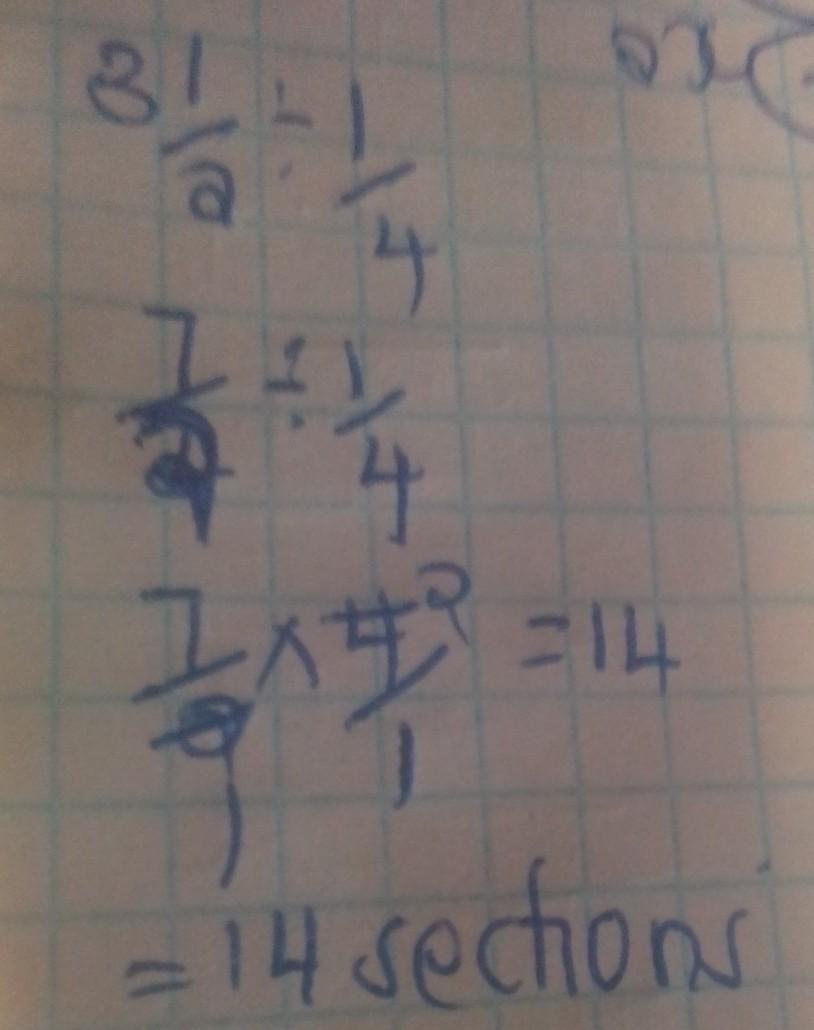 3 1/2 ÷ 1/4
7/2 ÷ 1/4
7/2 1 × 4 2/1 = 14
= 14 sections